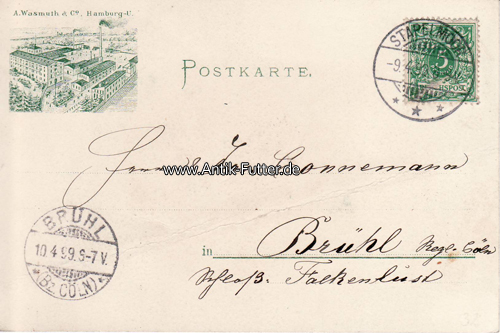 A. Wasmuth & Co, Hamburg-U.
POSTKARTE.
STAPELMOOR
-9.4.99
5
REICHSPOST
www.Antik-Futter.de
Connemann
in Brühl Bez. Cöln
Schloß Falkenlust
BRÜHL
10.4.99.6-7V.
*(Bz. CÖLN)*